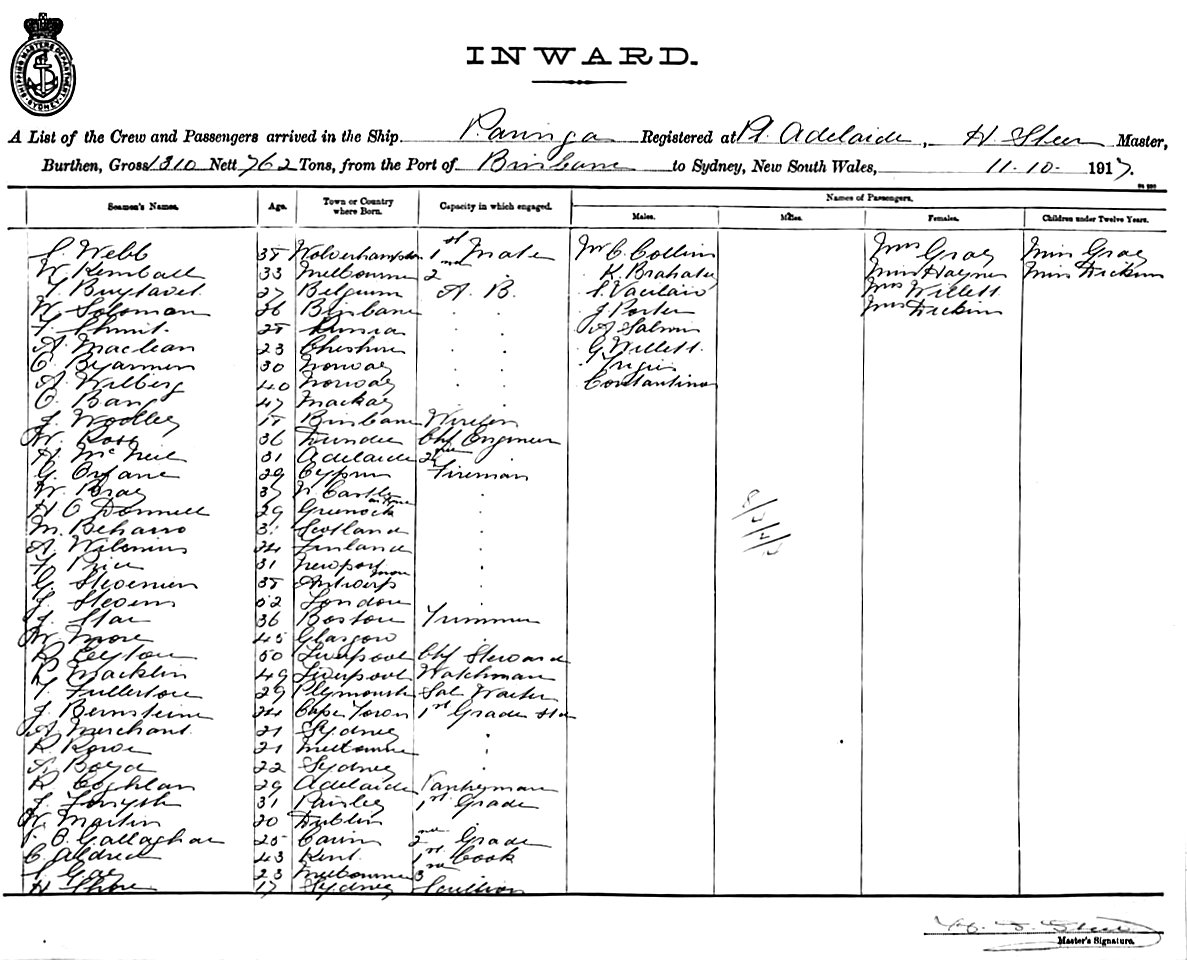 SHIPPING MASTERS DEPARTMENT SYDNEY
INWARD.
A List of the Crew and Passengers arrived in the Ship Paringa Registered at Pt. Adelaide, H. Steer Master,
Burthen, Gross 1310 Nett 762 Tons, from the Port of Brisbane to Sydney, New South Wales, 11-10- 1917.
Seamen's Names. Age. Town or Country where Born. Capacity in which engaged. Names of Passengers.
Males. Males. Females. Children under Twelve Years.
Webb 38 Wolverhampton 1st Mate Mr C. Collins Mrs Gray Miss Gray
W. Kemball 33 Melbourne 2nd K. Miss Haynes Miss Dickins
27 Belgium A. B. Mrs Willett
W. Solomon 26 Brisbane J. Porter Mrs Dickins
28 Russia Salmon
A. Maclean 23 Cheshire G. Willett
30 Norway
A. Wilberg 40 Norway Constantino
C. Bang 47 Mackay
J. Woolley 18 Brisbane Wireless
W. Ross 36 Dundee Chf Engineer
A. McNeil 31 Adelaide 2nd
G. 29 Cyprus Fireman
W. Bray 37 N Castle on Tyne
H O'Donnell 29 Greenock
M. 31 Scotland
A. 24 Finland
Price 31 Newport Mon
G. 38 Antwerp
J. Stevens 52 London
J. Star 36 Boston Trimmer
W. More 45 Glasgow
R. Leyton 50 Liverpool Chf Steward
Macklin 49 Liverpool Watchman
T. Fullerton 29 Plymouth Sal Waiter
J. Bernstein 24 Cape Town 1st Grade Std
A. Merchant 21 Sydney
R. Rowe 21 Melbourne
A. Boyd 22 Sydney
R. Coghlan 29 Adelaide Pantryman
J. Forsyth 31 Paisley 1st Grade
W. Martin 20 Dublin
Gallaghar 25 Cairns 2nd Grade
C. Aldred 43 Kent 1st Cook
Gay 23 Melbourne 3rd
H. Shore 17 Sydney Scullion
Master's Signature.